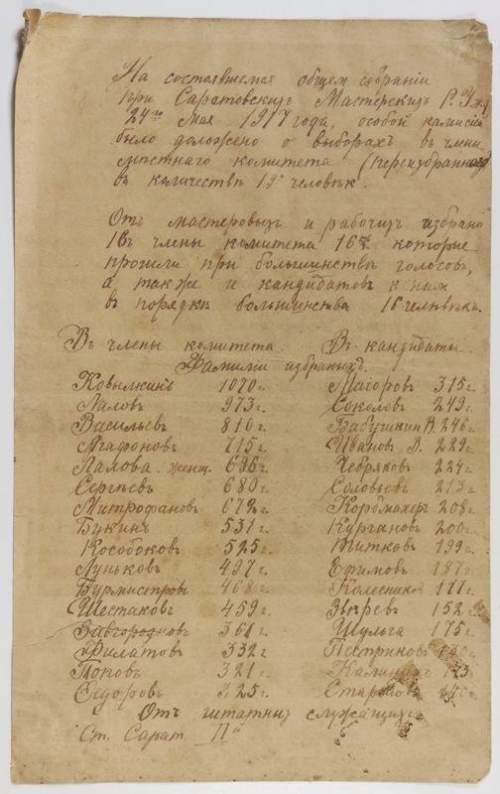 На состоявшемся общем собраніи
при Саратовскихъ Мастерскихъ Р. У. ж. д.
24го Мая 1917 года особой комисіи
было доложено о выборахъ въ члены
мѣстнаго комитета (переизбраннаго)
въ количествѣ 19ти человѣкъ.
Отъ мастеровыхъ и рабочихъ избрано
въ члены комитета 16ть которые
прошли при большинствѣ голосовъ,
а также и кандидатовъ к нимъ
въ порядкѣ большинства 16 человѣкъ.
Въ члены комитета. Въ кандидаты.
Фамиліи избраныхъ.
Ковылкинъ 1070 г. Магоровъ 315 г.
Лаловъ 973 г. Соколовъ 249 г.
Васильевъ 816 г. Бабушкин В. 246 г.
Агафоновъ 715 г. Иванов В. 229 г.
Ламова женщ. 696 г. Чебряковъ 224 г.
Сергѣевъ 680 г. Соловьевъ 213 г.
Митрофановъ 672 г. Кормахеръ 208 г.
Букинъ 531 г. Кургановъ 200 г.
Кособоковъ 525 г. Титковъ 199 г.
Луньковъ 497 г. Ефимовъ 187 г.
Бурмистровъ 468 г. Колесников 177 г.
Шестаковъ 459 г. Звѣревъ 152
Завгородновъ 361 г. Шульга 175 г.
Филатовъ 332 г. Пестриковъ
Поповъ 321 г. Калинин
Сидоровъ 325 г.
Отъ штатныхъ служащихъ
Ст. Сарат. II й